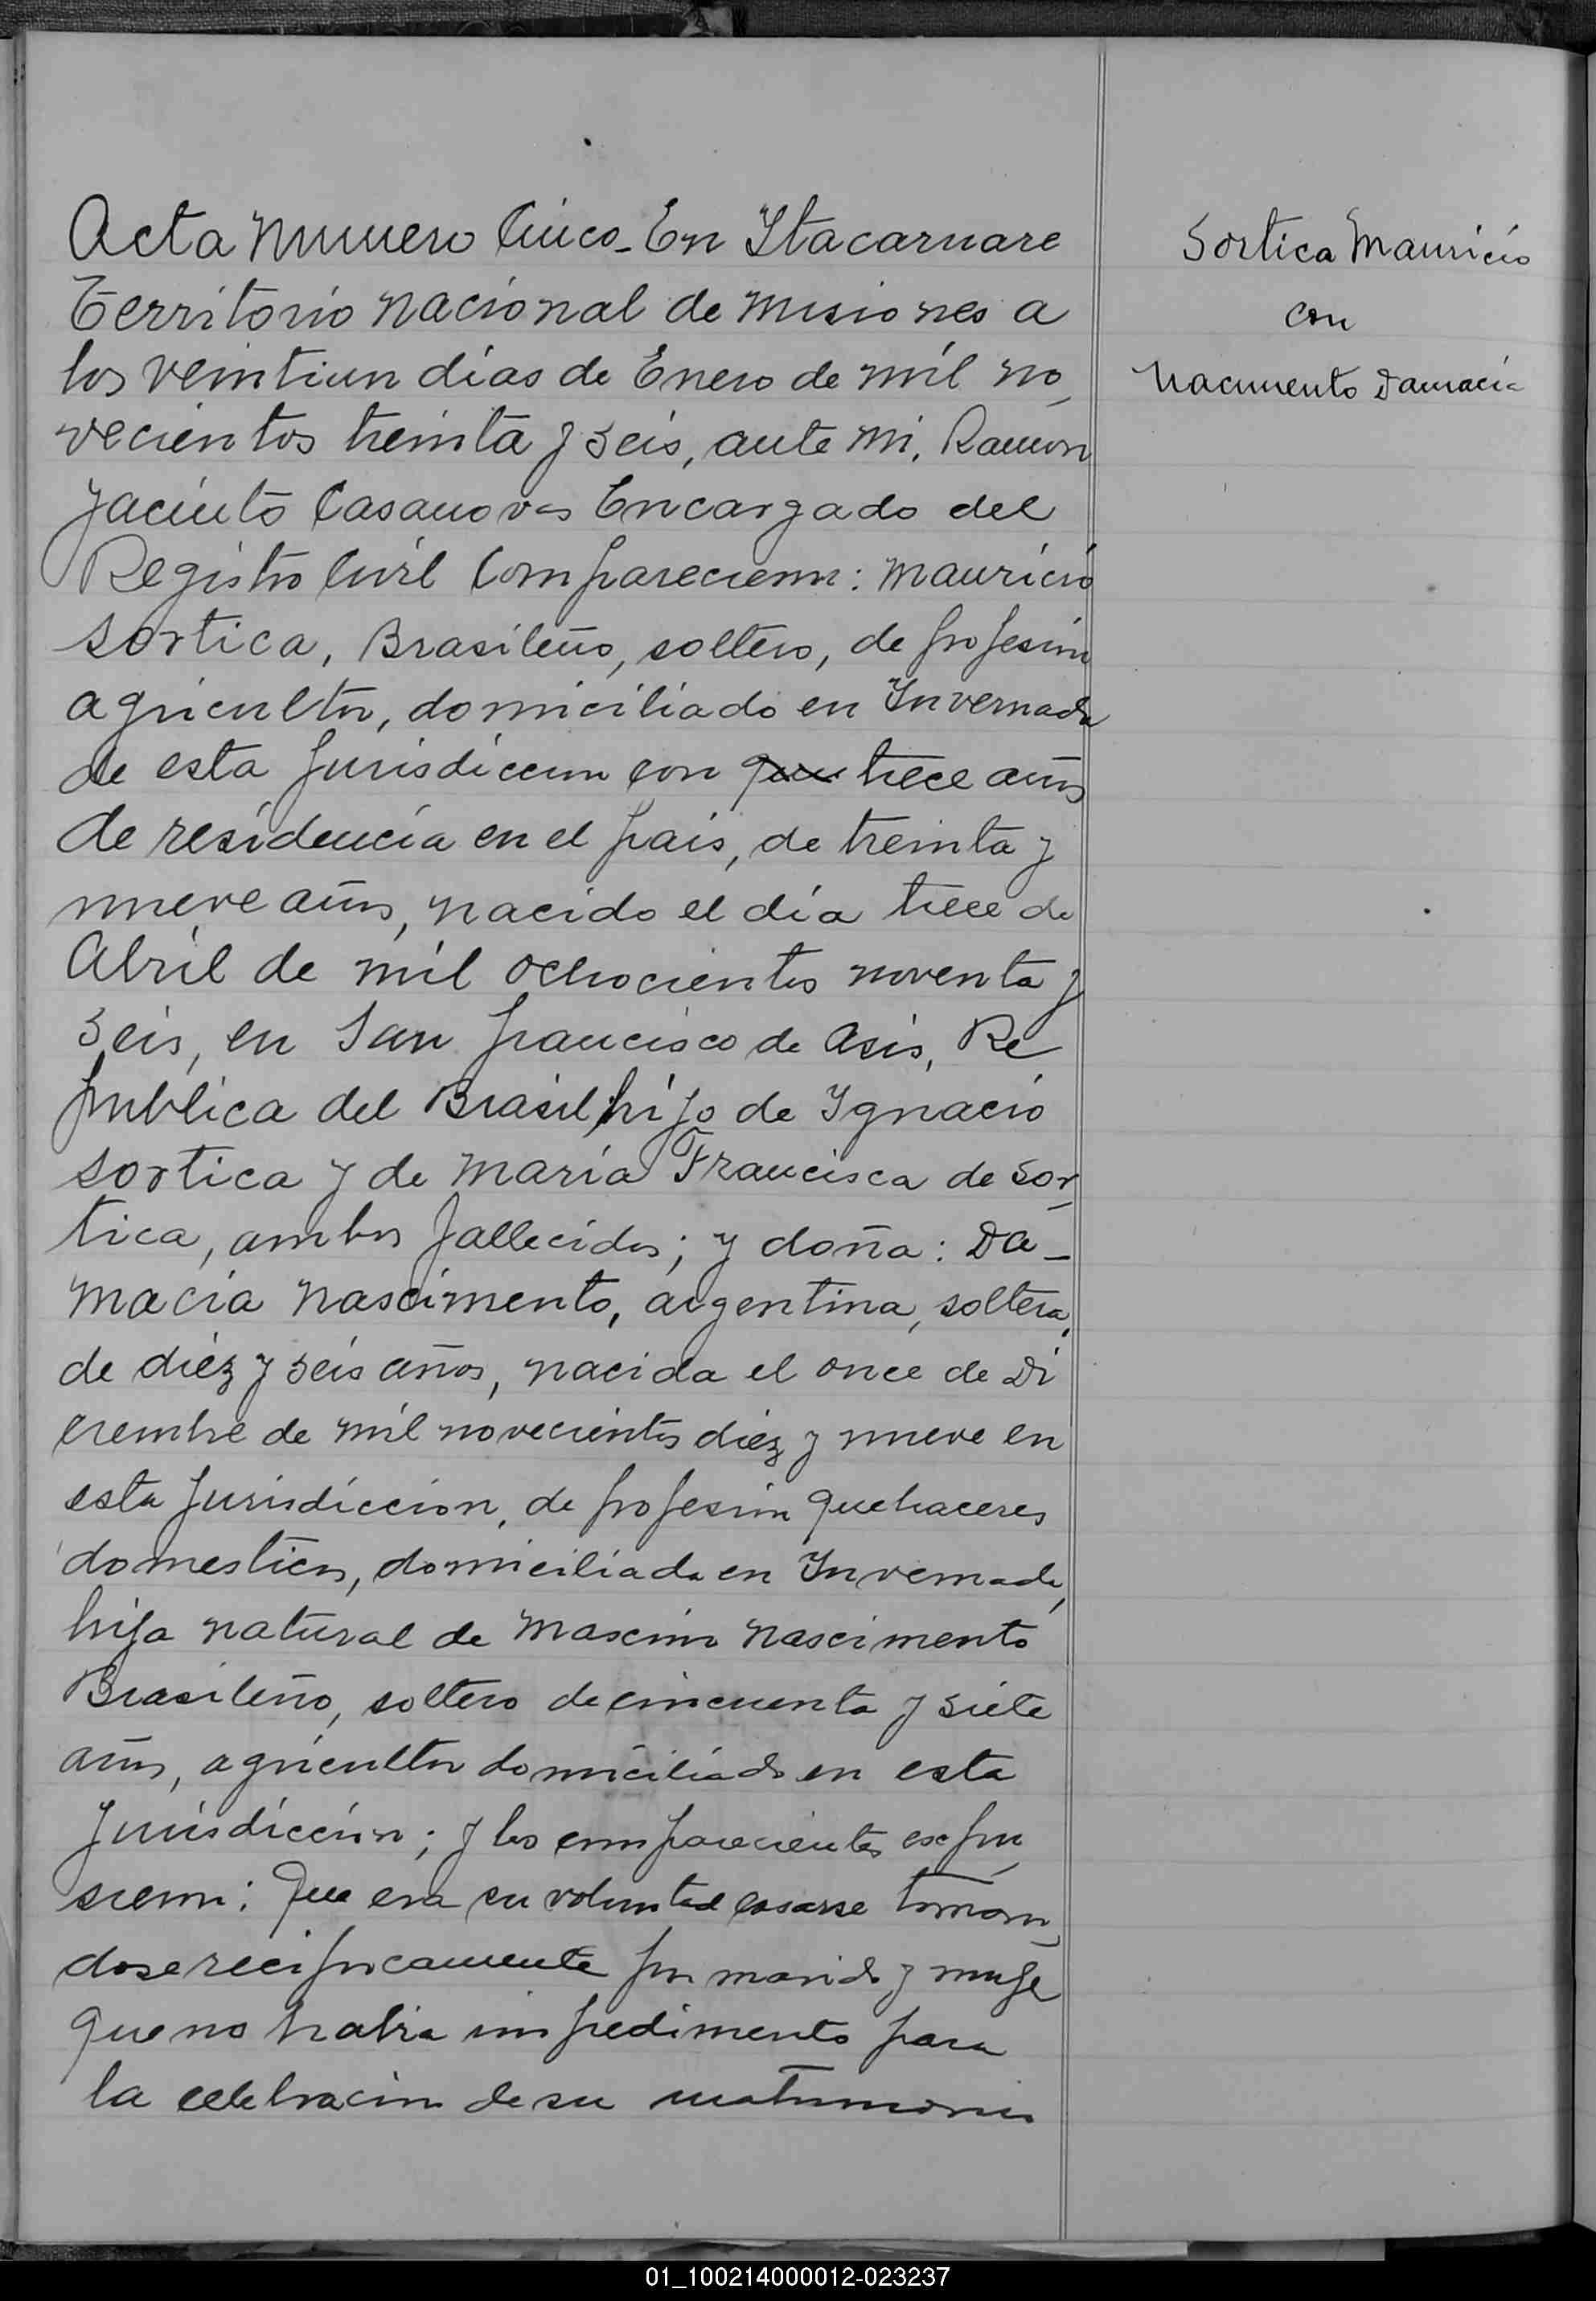 Acta Numero Cinco - En Itacaruare
Territorio Nacional de Misiones a
los veintiun días de Enero de mil no
vecientos treinta y seis, ante mi, Ramon
Jacinto Casanovas Encargado del
Registro Civil Comparecieron: Mauricio
Sortica, Brasileño, soltero, de profesion
agricultor, domiciliado en Invernada
de esta jurisdiccion con trece años
de residencia en el pais, de treinta y
nueve años, nacido el día trece de
Abril de mil ochocientos noventa y
seis, en San Francisco de Asis, Re
publica del Brasil, hijo de Ignacio
Sortica y de María Francisca de Sor
tica, ambos fallecidos; y doña: Da-
macia Nascimento, argentina, soltera,
de diéz y seis años, nacida el once de Di
ciembre de mil novecientos diez y nueve en
esta jurisdiccion, de profesion quehaceres
domesticos, domiciliada en Invernada,
hija natural de Maximo Nascimento
Brasileño, soltero de cincuenta y siete
años, agricultor domiciliado en esta
jurisdiccion; y los comparecientes expu
sieron: Que era su voluntad casarse toman
dose reciprocamente por marido y muje
que no habia impedimento para
la celebracion de su matrimonio
Sortica Mauricio
con
Nacimento Damacia
01_100214000012-023237